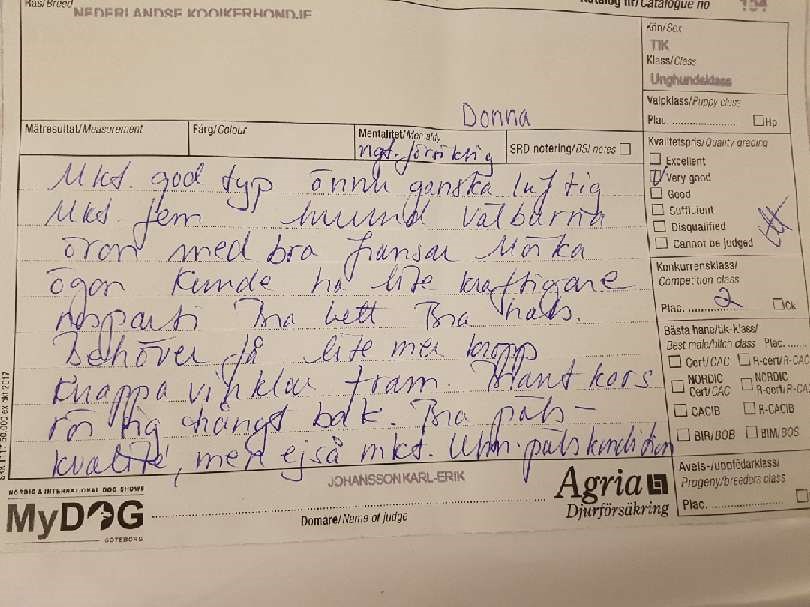 Ras/Breed NEDERLANDSE KOOIKERHONDJE
Katalog nr/Catalogue no 154
Kön/Sex
TIK
Klass/Class
Unghundsklass
Valpklass/Puppy class
Plac. Hp
Donna
Mätresultat/Measurement
Färg/Colour
Mentalitet/
ngt. försiktig
SRD notering/BSI notes
Mkt. god typ ännu ganska luftig
Mkt. fem hund Välburna
öron med bra fransar Mörka
ögon Kunde ha lite kraftigare
nosparti Bra bett Bra hals.
Behöver få lite mer kropp
Knappa vinklar fram Brant kors
rör sig trångt bak. Bra päls-
kvalité, men ej så mkt. Utm. pälskondition
Kvalitetspris/Quality grading
Excellent
Very good
Good
Sufficient
Disqualified
Cannot be judged
Konkurrensklass/
Competition class
Plac. 2 Ck
Bästa hane/tik-klass/
Best male/bitch class Plac.
Cert/CAC R-cert/R-CAC
NORDIC Cert/CAC NORDIC R-cert/R-CAC
CACIB R-CACIB
BIR/BOB BIM/BOS
Avels-/uppfödarklass/
Progeny/breeders class
Plac.
NORDIC & INTERNATIONAL DOG SHOWS
MyDOG
GÖTEBORG
JOHANSSON KARL-ERIK
Domare/Name of judge
Agria
Djurförsäkring